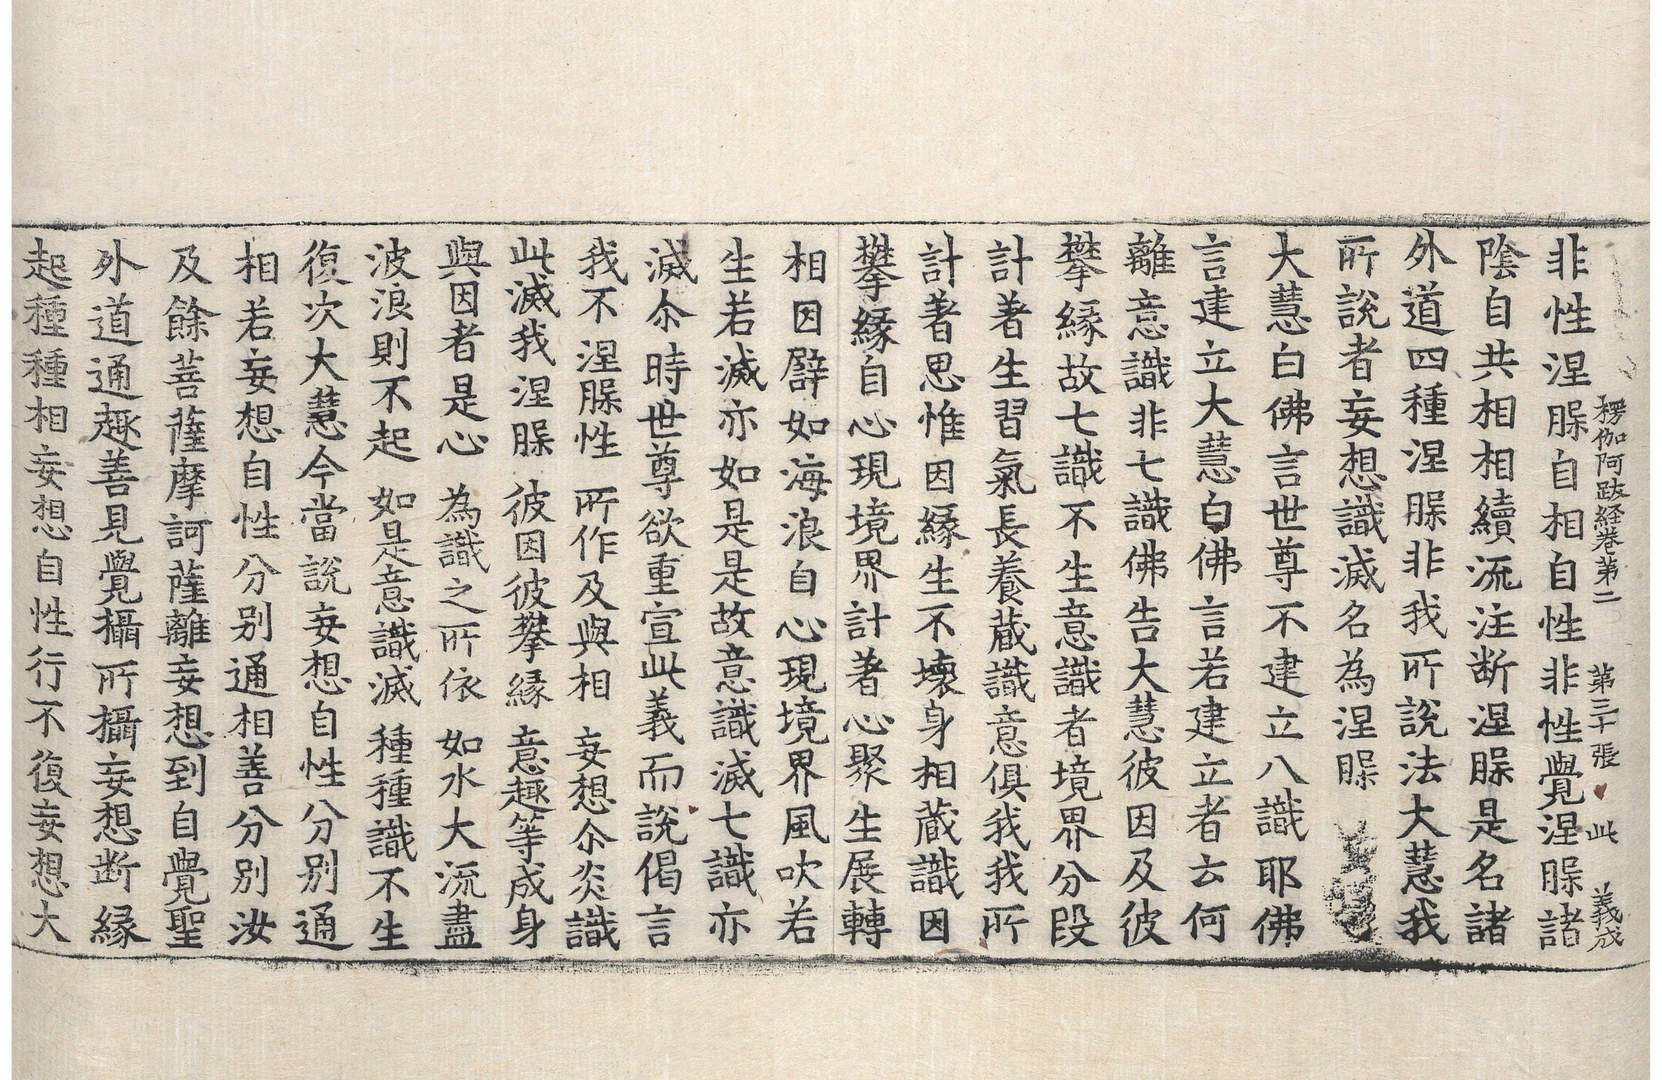 楞伽阿跋経卷第二 第三十張 此 義成
非性涅脲自相自性非性覺涅脲諸
陰自共相相續流注断涅脲是名諸
外道四種涅脲非我所說法大慧我
所說者妄想識滅名為涅脲
大慧白佛言世尊不建立八識耶佛
言建立大慧白佛言若建立者云何
離意識非七識佛告大慧彼因及彼
攀緣故七識不生意識者境界分段
計著生習氣長養蔵識意俱我我所
計著思惟因緣生不壞身相蔵識因
攀緣自心現境界計著心聚生展轉
相因譬如海浪自心現境界風吹若
生若滅亦如是是故意識滅七識亦
滅尒時世尊欲重宣此義而說偈言
我不涅脲性 所作及與相 妄想尒炎識
此滅我涅脲 彼因彼攀緣 意趣等成身
與因者是心 為識之所依 如水大流盡
波浪則不起 如是意識滅 種種識不生
復次大慧今當說妄想自性分别通
相若妄想自性分别通相善分别汝
及餘菩薩摩訶薩離妄想到自覺聖
外道通趣善見覺攝所攝妄想断緣
起種種相妄想自性行不復妄想大